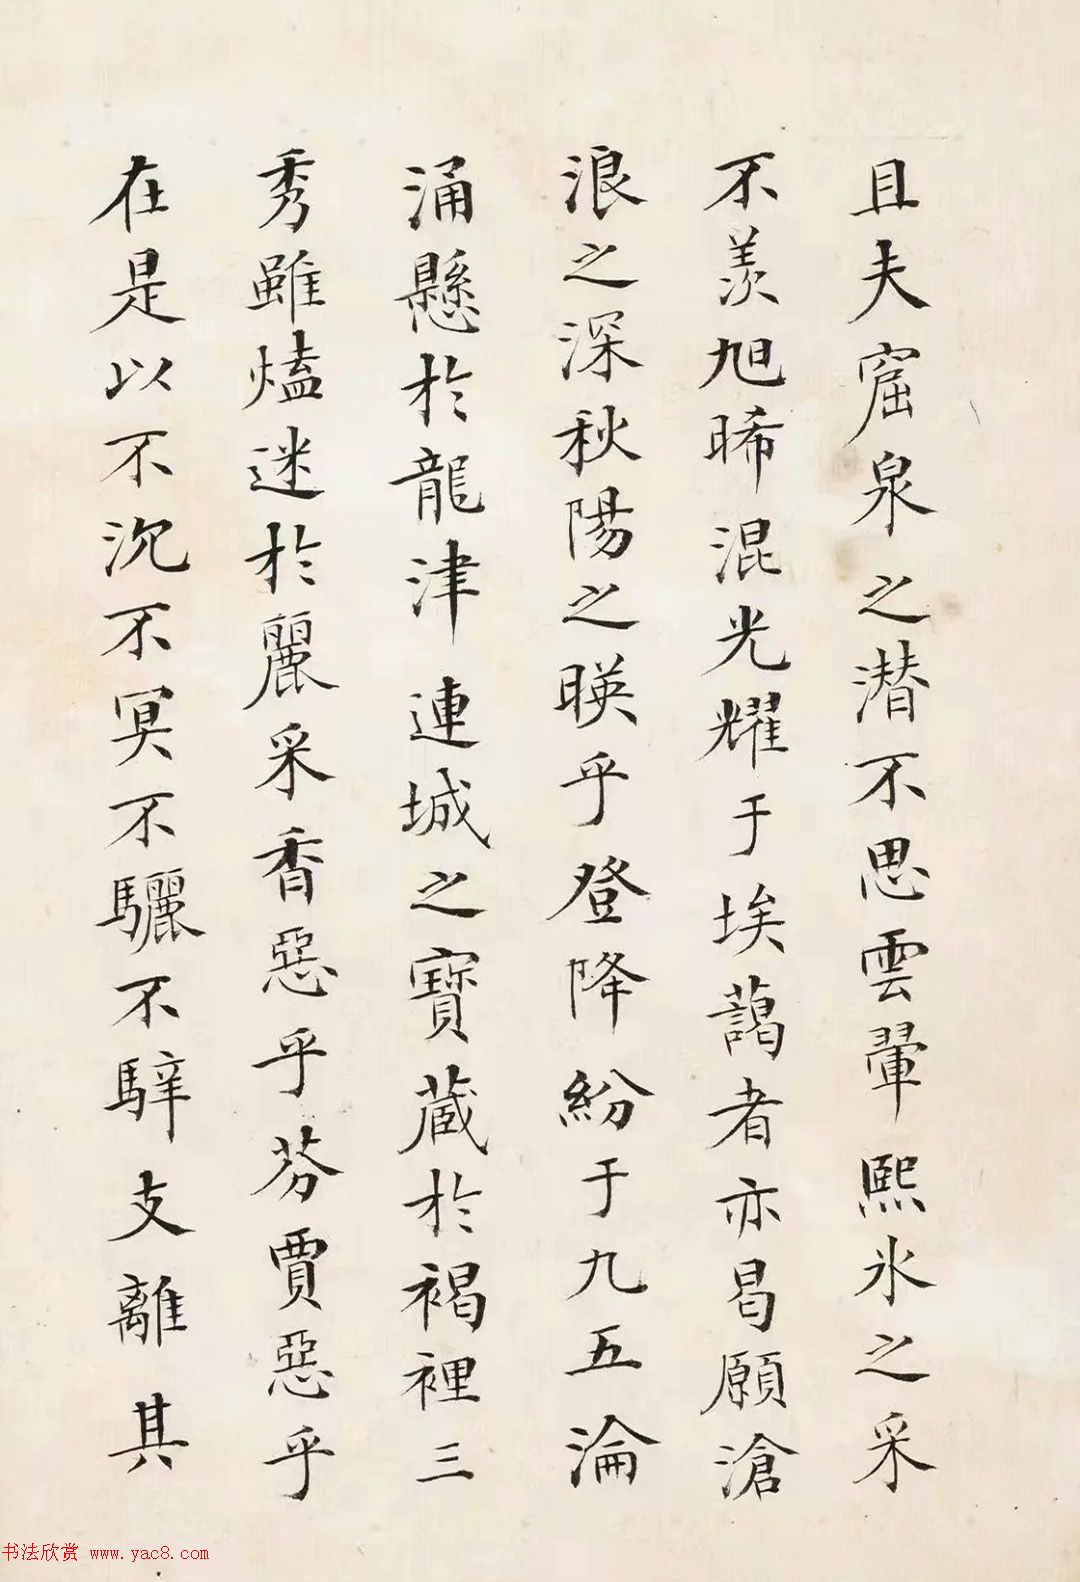 且夫窟泉之潜不思雲翬熙氷之采
不羨旭晞混光耀于埃藹者亦曷願滄
浪之深秋陽之暎乎登降紛于九五淪
涌懸於龍津連城之寶藏於褐裡三
秀雖熆迷於麗采香惡乎芬賈惡乎
在是以不沉不冥不驪不騂支離其
书法欣赏 www.yac8.com